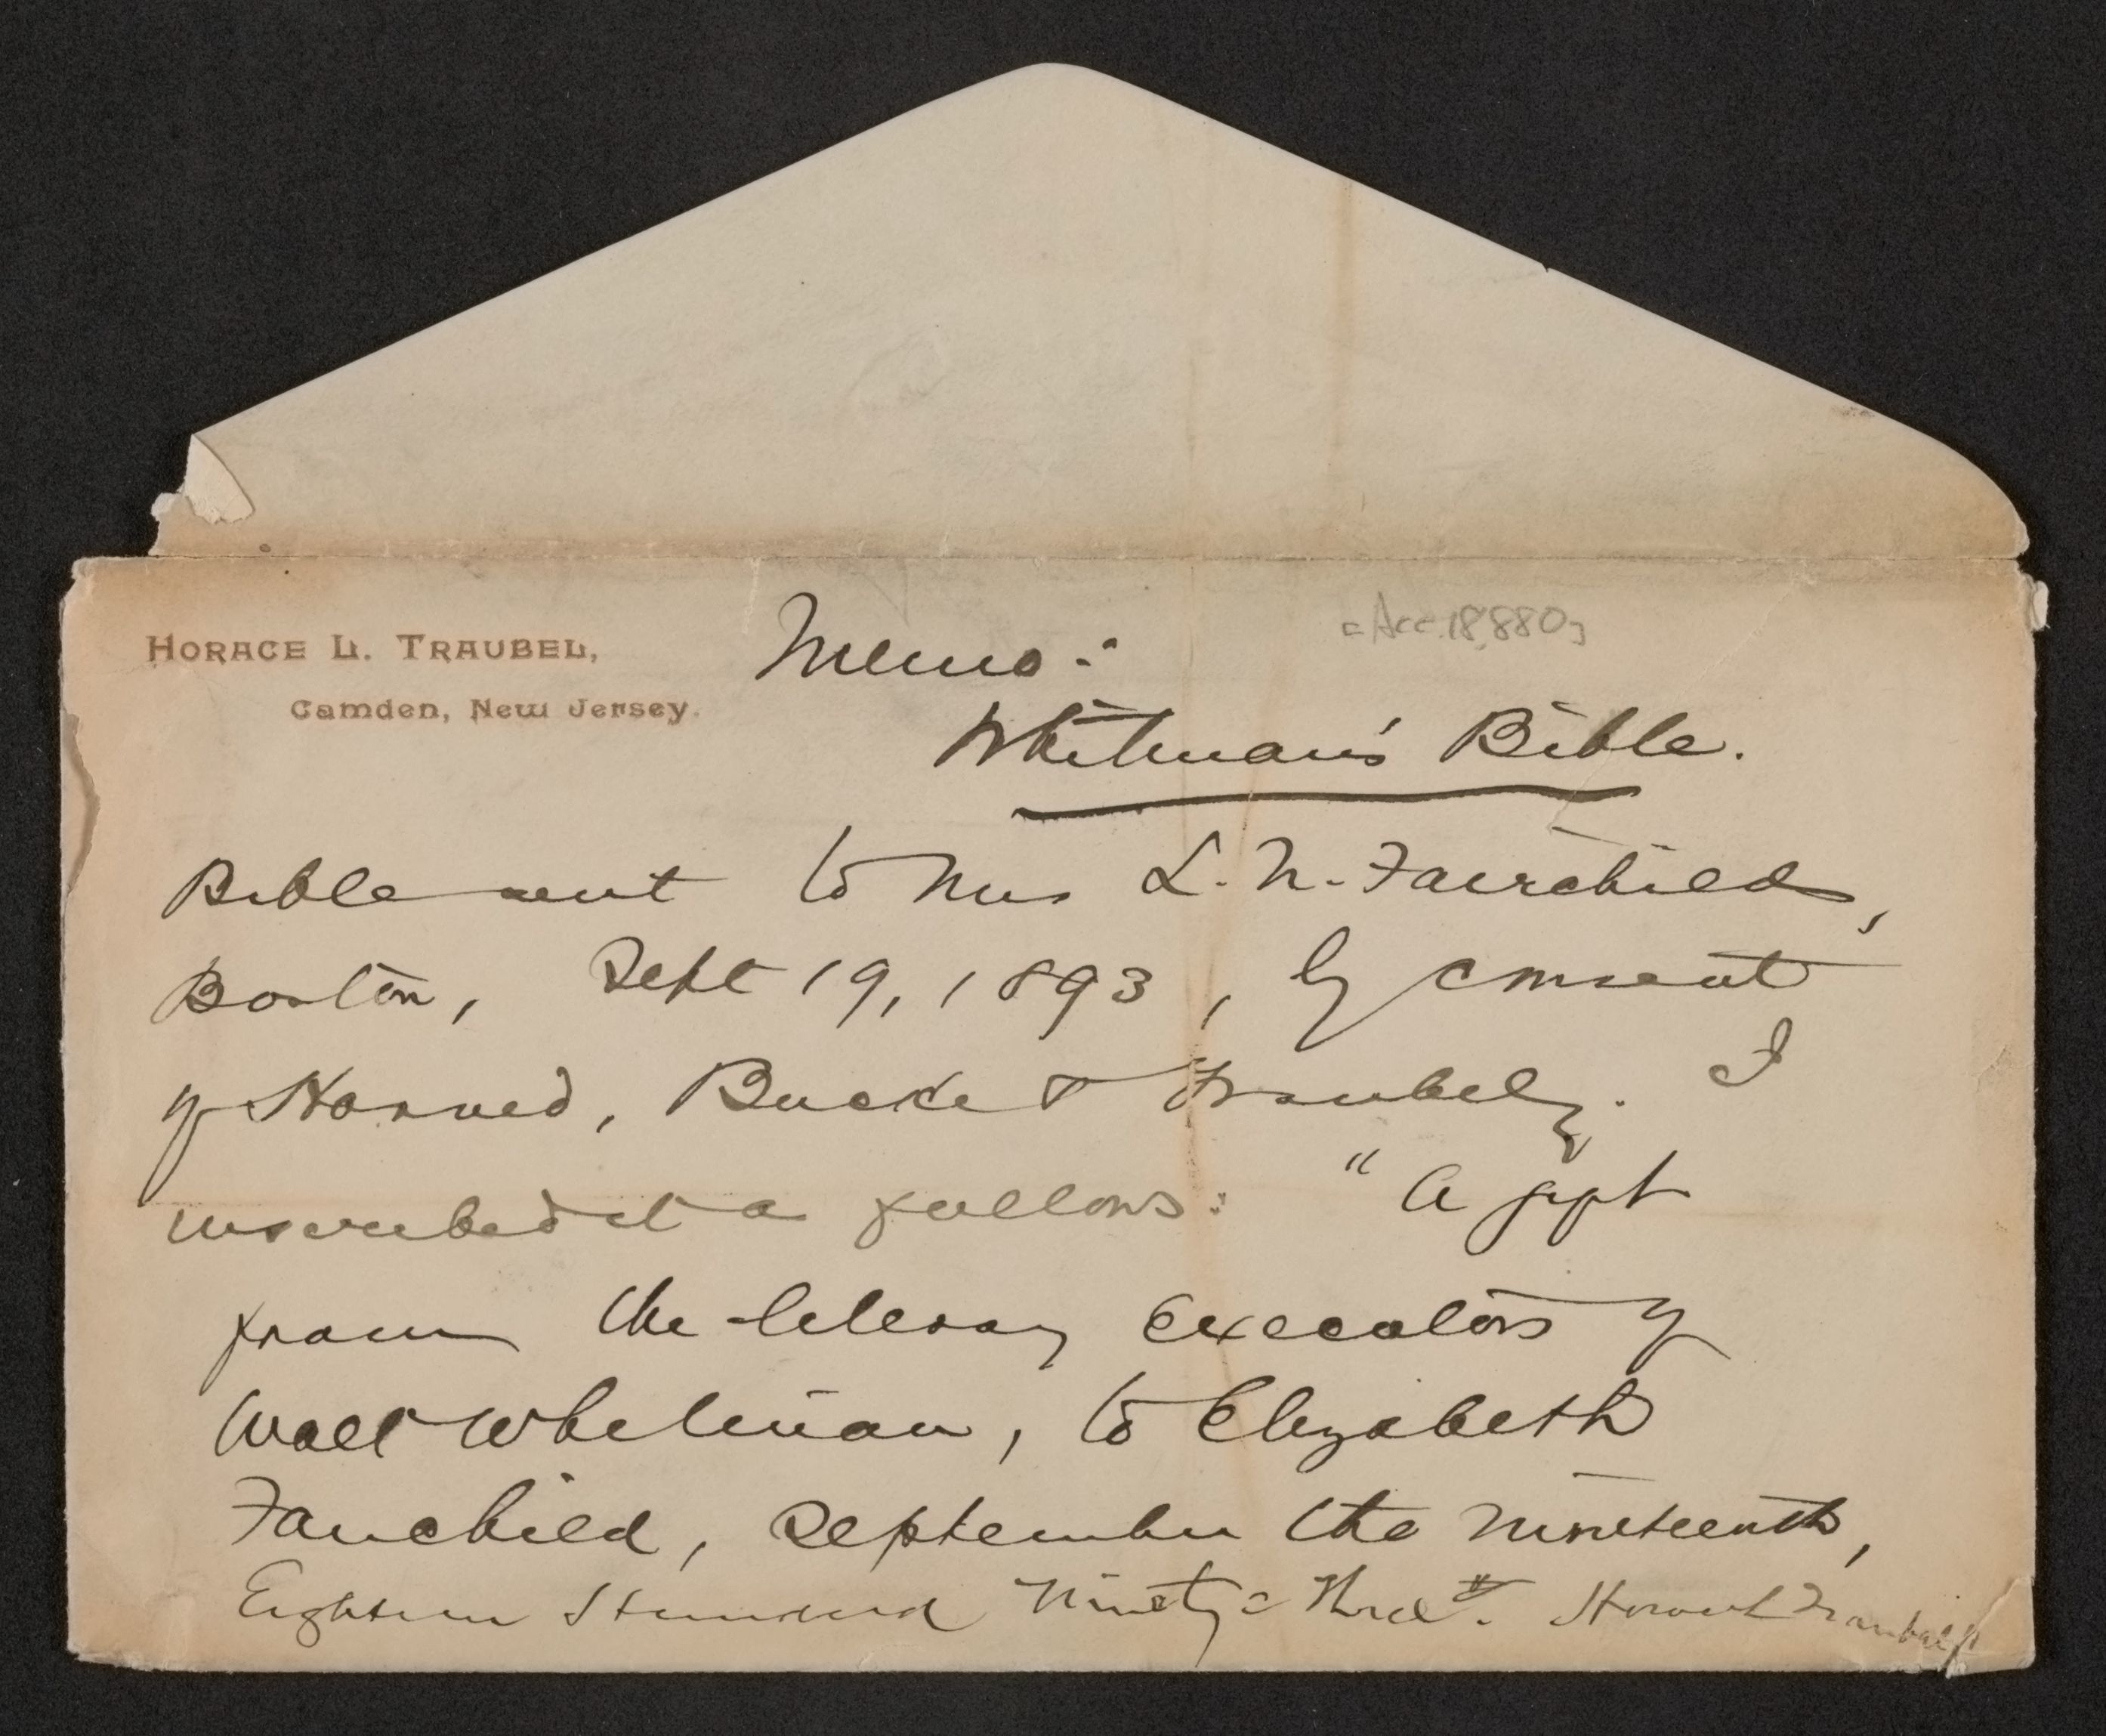 HORACE L. TRAUBEL,
Camden, New Jersey.
Memo:
[Acc. 18,880]
Whitman's Bible.
Bible sent to Mrs L. N. Fairchild,
Boston, Sept 19, 1893, by consent
of Harned, Bucke & Traubel. I
inscribed it as follows: "A gift
from the literary executors of
Walt Whitman, to Elizabeth
Fairchild, September the nineteenth,
Eighteen Hundred Ninety-Three". Horace Traubel